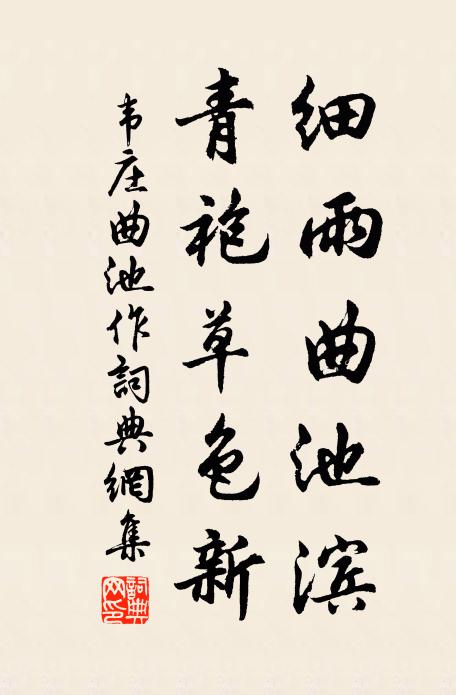 细雨曲池滨
青袍草色新
韦庄曲池作詞典網集
詞典网印